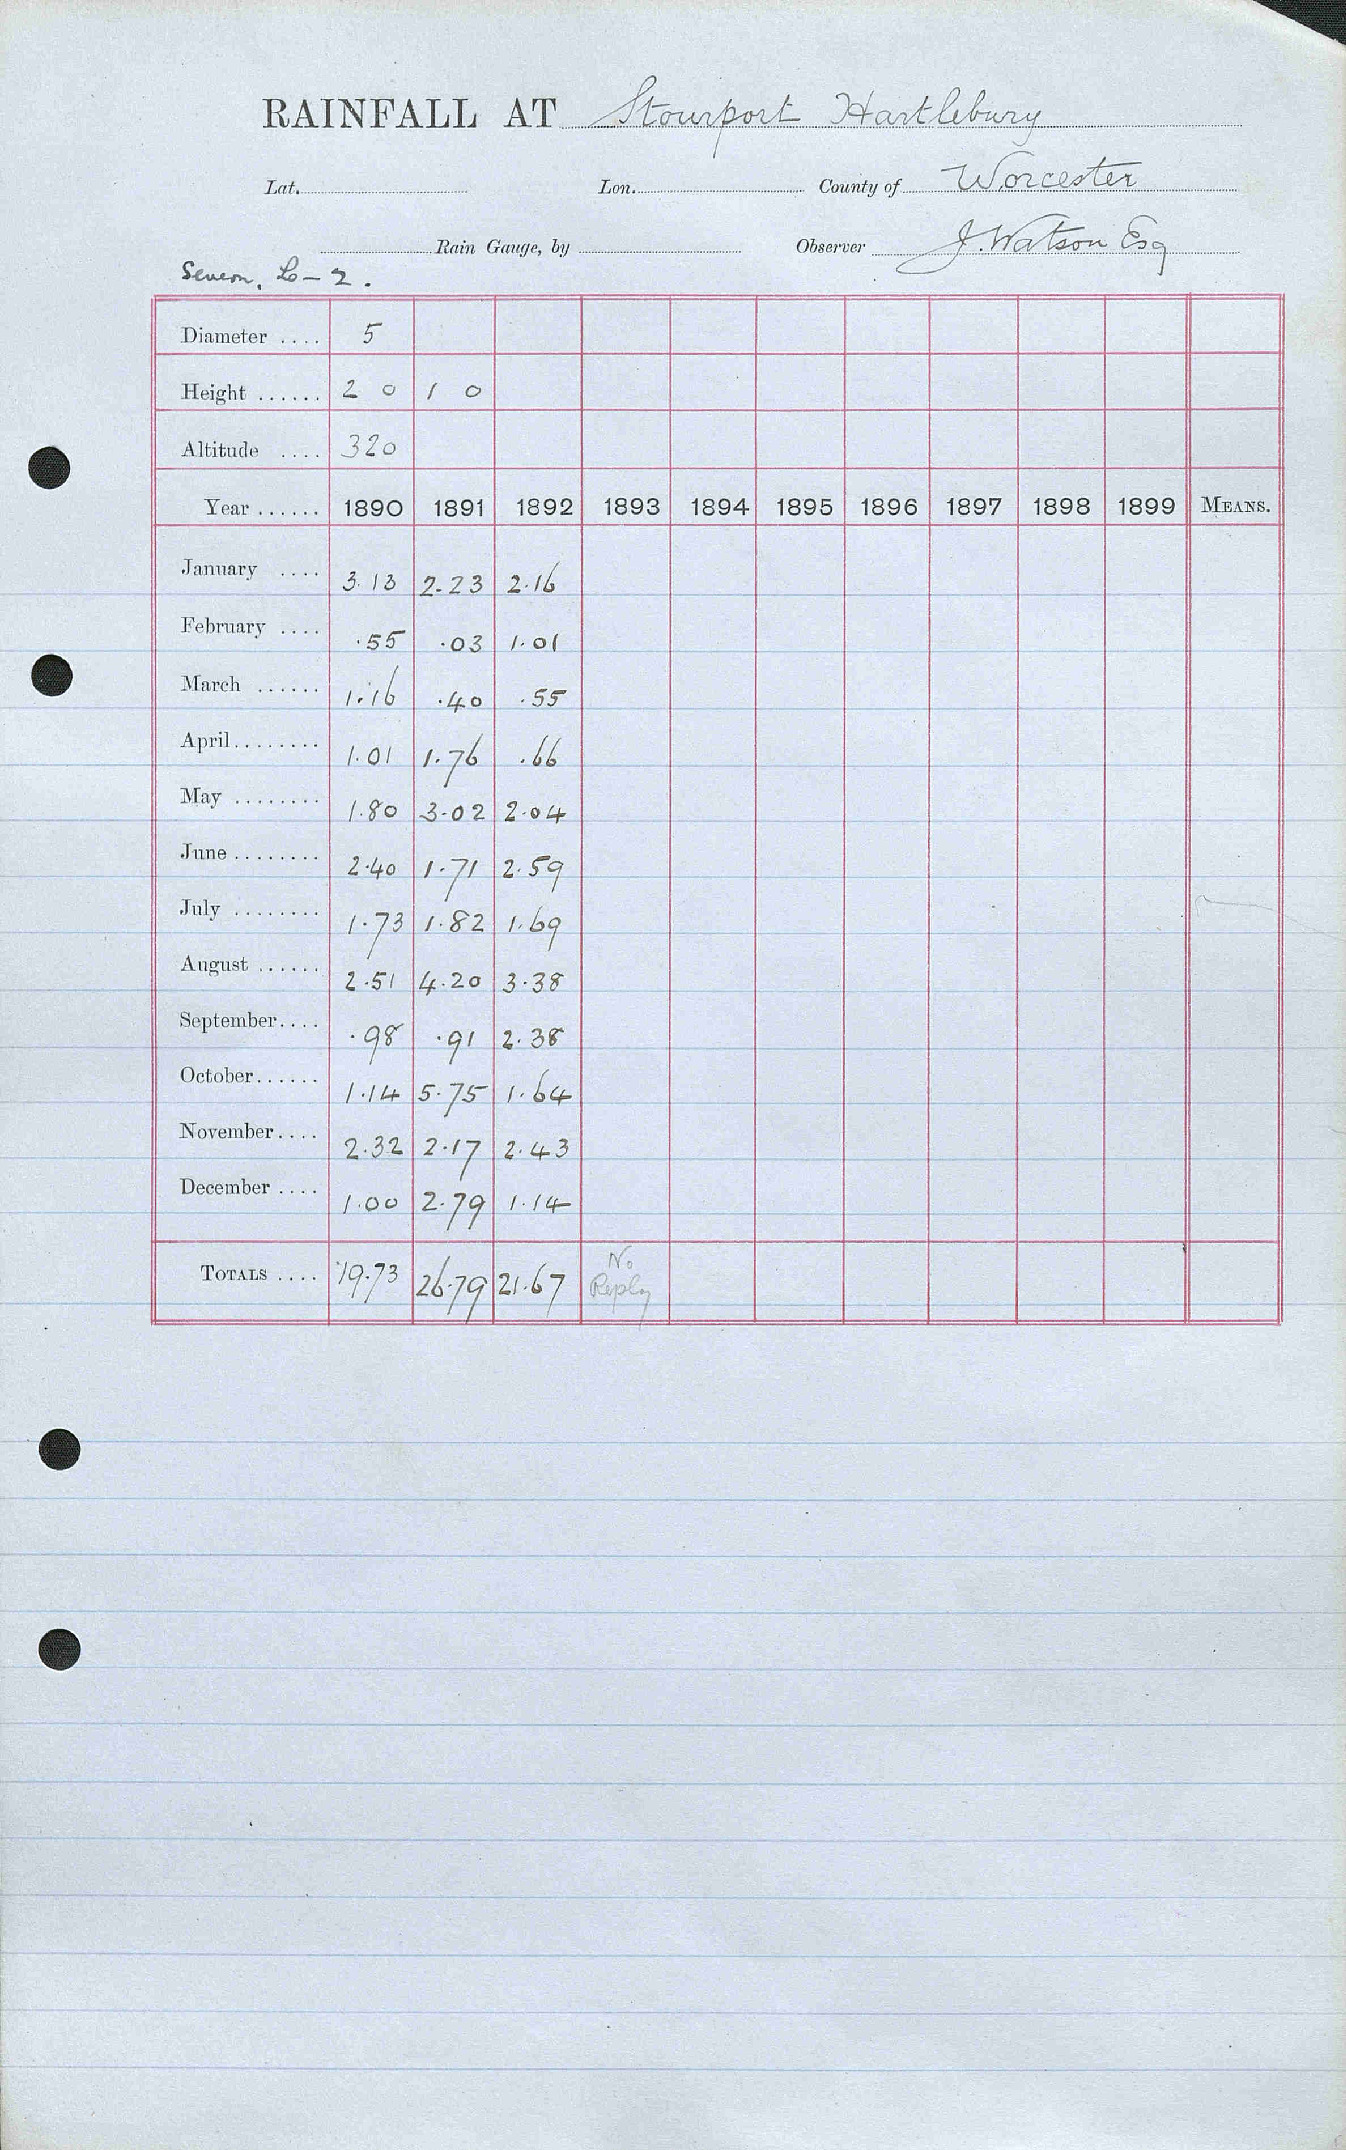 RAINFALL AT Stourport Hartlebury
Lat. Lon. County of Worcester
Rain Gauge, by Observer J. Watson Esq
Severn, L-2.
Diameter .... 5
Height ...... 2 0 1 0
Altitude .... 320
Year ...... 1890 1891 1892 1893 1894 1895 1896 1897 1898 1899 MEANS.
January .... 3.13 2.23 2.16
February .... .55 .03 1.01
March ...... 1.16 .40 .55
April........ 1.01 1.76 .66
May ........ 1.80 3.02 2.04
June ........ 2.40 1.71 2.59
July ........ 1.73 1.82 1.69
August ...... 2.51 4.20 3.38
September.... .98 .91 2.38
October...... 1.14 5.75 1.64
November.... 2.32 2.17 2.43
December .... 1.00 2.79 1.14
TOTALS .... 19.73 26.79 21.67 No Reply